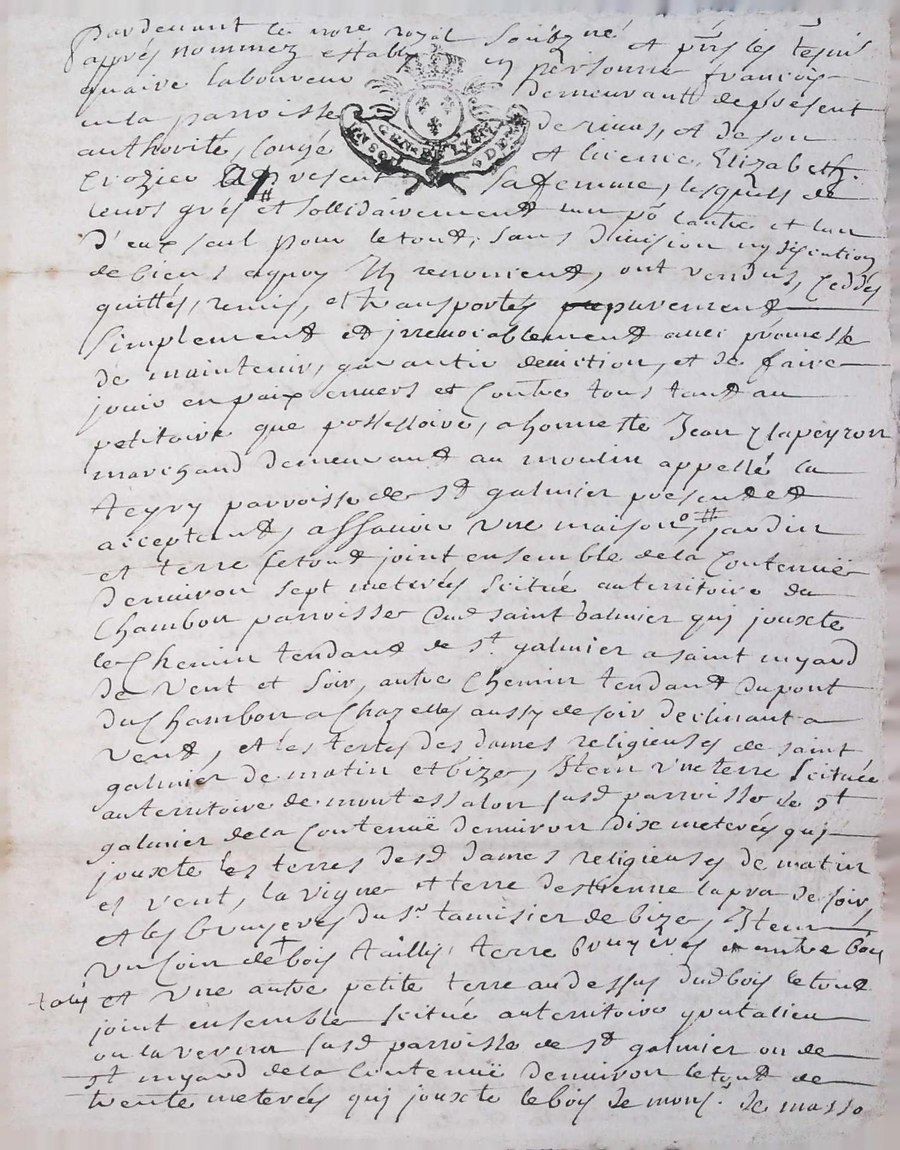 Pardevant le nore royal soubzné et pnts les tesmis
apprés nommez establis en personne françois
quaire laboureur demeurantt de présent
en la parroisse de rivas, et de son
authorité, Congé et licence, Elizabeth
Crozier présent sa femme, lesquels de
leurs grés et sollidairement lun po lautre et lun
d'eux seul pour le tout, sans division ny discution
de biens aquoy Ils renoncent, ont vendus, ceddés
quittés, remis, et transportés purement
simplement et irrevocablement avec promesse
de maintenir, garantir deviction, et de faire
jouir en paix envers et Contre tous tant au
petitoire que possessoire, a honneste Jean Clapeyron
marchand demeurant au moulin appellé la
teyry parroisse de st galmier present et
acceptant, assavoir une maison, jardin
et terre le tout joint ensemble de la Contenuë
denviron sept meterées scitué au territoire du
Chambon parroisse dud saint Galmier qui jouxte
le Chemin tendant de st galmier a saint myard
de vent et soir, autre Chemin tendant du pont
du Chambon a Chazelles aussy de soir declinant a
vent, et les terres des dames religieuses de saint
galmier de matin et bize, Item une terre scituée
au territoire de montessalon susd parroisse de st
galmier de la Contenuë denviron dix meterées qui
jouxte les terres desd dames religieuses de matin
et vent, la vigne et terre destienne lapra de soir
et les bruyeres du sr tamisier de bize, Item
un Coin de bois taillis terre bruyères et autre bois
et une autre petite terre au dessus dud bois le tout
joint ensemble scitué au territoire
ou la verina susd parroisse de st galmier ou de
st myard de la Contenuë denviron le tout de
trente meterées qui jouxte le bois de mons.r de masso